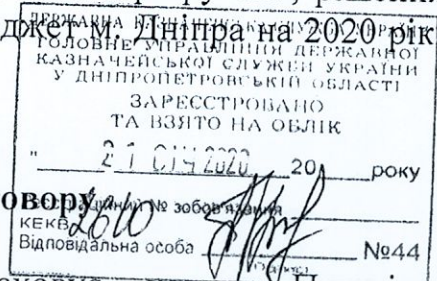 джет м. Дніпра на 2020 рік
ДЕРЖАВНА КАЗНАЧЕЙСЬКА СЛУЖБА УКРАЇНИ
ГОЛОВНЕ УПРАВЛІННЯ ДЕРЖАВНОЇ
КАЗНАЧЕЙСЬКОЇ СЛУЖБИ УКРАЇНИ
У ДНІПРОПЕТРОВСЬКІЙ ОБЛАСТІ
ЗАРЕЄСТРОВАНО
ТА ВЗЯТО НА ОБЛІК
" 21 СІЧ 2020 20 року
овору
номер зобов'язання
КЕКВ 2610
Відповідальна особа №44